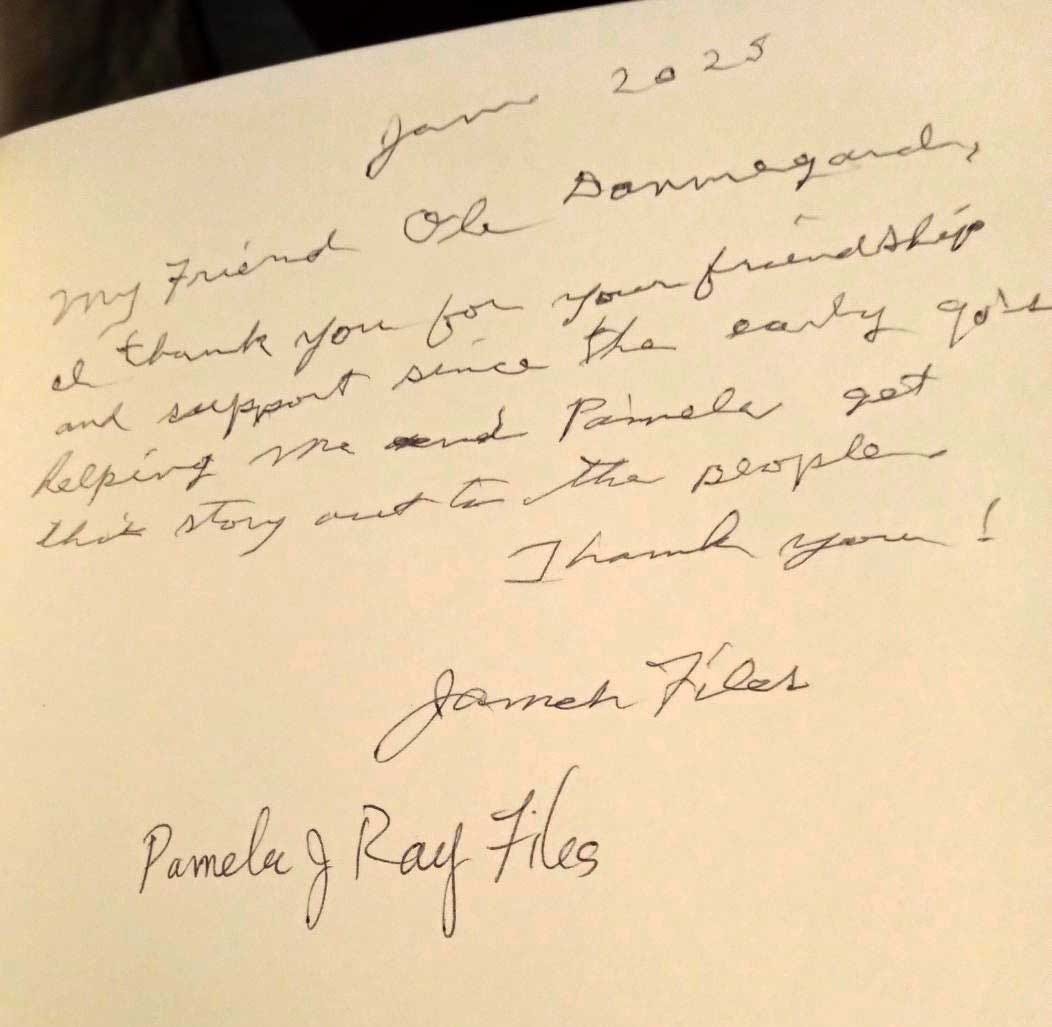 June 2025
My Friend Ole Dammegard,
I thank you for your friendship
and support since the early 90's
helping me and Pamela get
this story out to the people.
Thank you!
James Files
Pamela J Ray Files